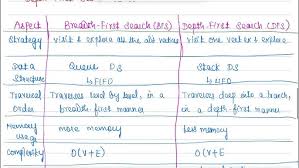 Aspect Breadth-First Search (BFS) Depth-First Search (DFS)
Strategy visit & explore all the vertices visit one vertex & explore
Data Queue DS Stack DS
Structure ↳ FIFO ↳ LIFO
Traversal Traverses level by level, in a Traverses deep into a branch,
Order breadth-first manner in a depth-first manner
Memory more memory less memory
usage
Complexity O(V+E) O(V+E)